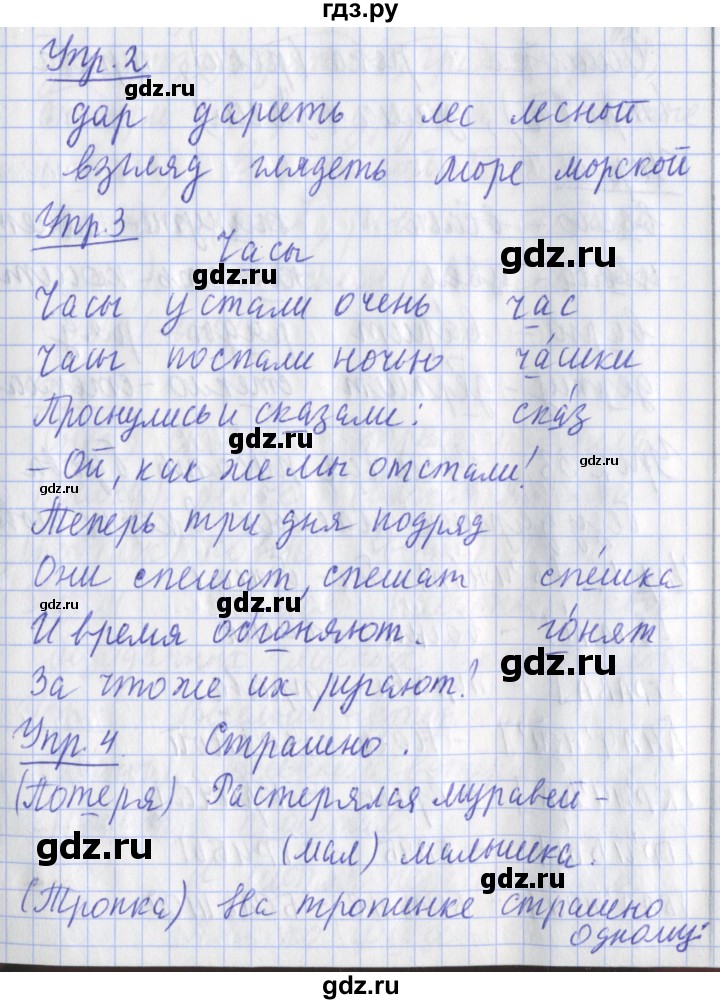 гдз.ру
Упр. 2
gdz.ru
дар дарить лес лесной
gdz.ru
взгляд глядеть море морской
Упр.3
Часы
gdz.ru
gdz.ru
Часы устали очень час
Часы поспали ночью часики
Проснулись и сказали: сказ
gdz.ru
- Ой, как же мы отстали!
gdz.ru
gdz.ru
Теперь три дня подряд
Они спешат, спешат спешка
gdz.ru
gdz.ru
И время обгоняют. гонят
gdz.ru
За что же их ругают?
Упр. 4 Страшно.
(Потеря) Растерялся муравей -
gdz.ru
(мал) малышка.
gdz.ru
(Тропка) На тропинке страшно
одному:
gdz.ru